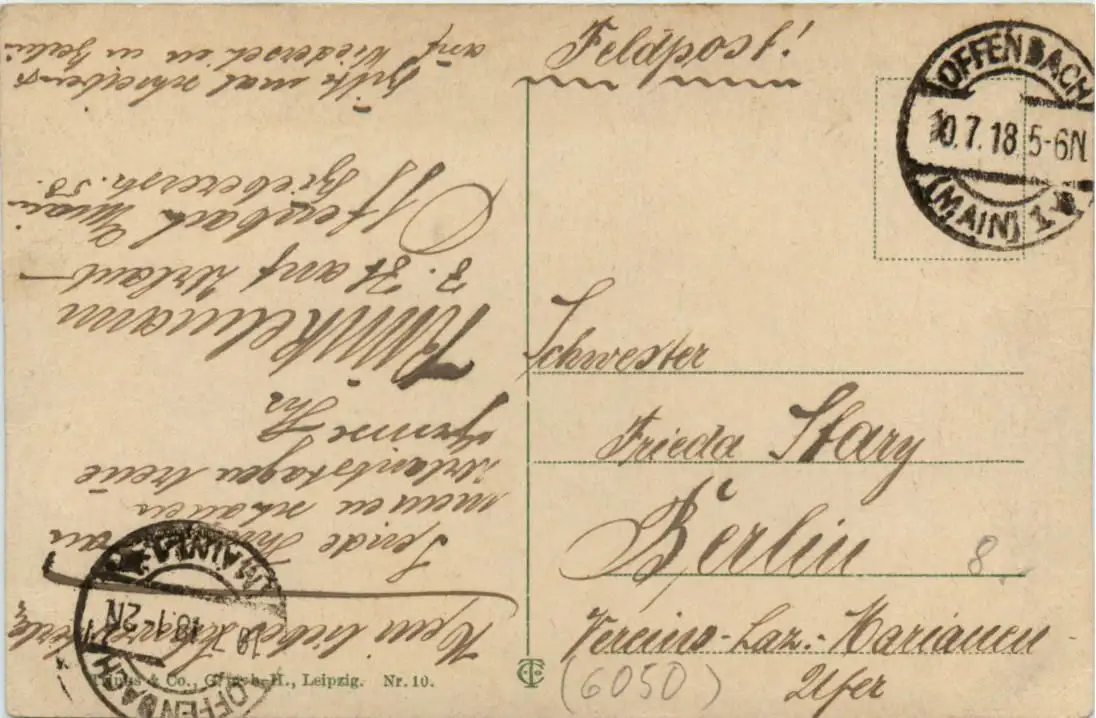 Feldpost!
OFFENBACH
10.7.18. 5-6N
(MAIN) 1
Schwester
Frieda Stary
Berlin
Vereins-Laz.- Marianen
Ufer
8
(6050)
Mein liebes
Sende Ihnen an
meinen schönen
Urlaubstagen treue
Grüsse Ihr
Winkelmann
z. Zt auf Urlaub
Offenbach Main
Biebererstr. 53.
Bitte mal schreiben!
auf Wiedersehen in Berlin
OFFENBACH
18.1-2N
(MAIN) 1
& Co., G.m.b.H., Leipzig. Nr. 10.